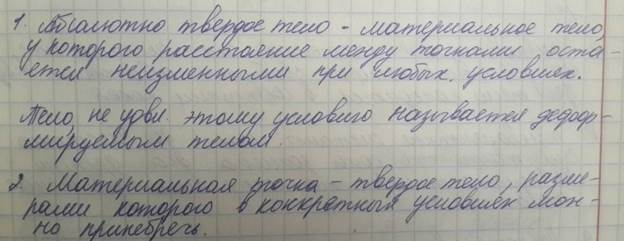 1. Абсолютно твердое тело - материальное тело,
у которого расстояние между точками оста-
ется неизменными при любых условиях.
Тело, не удвл. этому условию называется дефор-
мируемым телом.
2. Материальная точка - твердое тело, разме-
рами которого в конкретных условиях мож-
но принебречь.